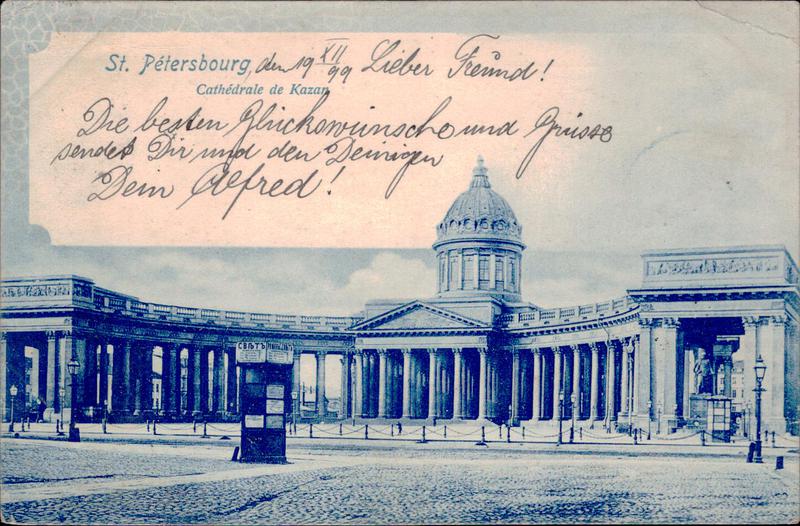 St. Pétersbourg, den 19 XII/99 Lieber Freund!
Cathédrale de Kazan
Die besten Glückswünsche und Grüsse
sendet Dir und den Deinigen
Dein Alfred!
СВѢТЪ